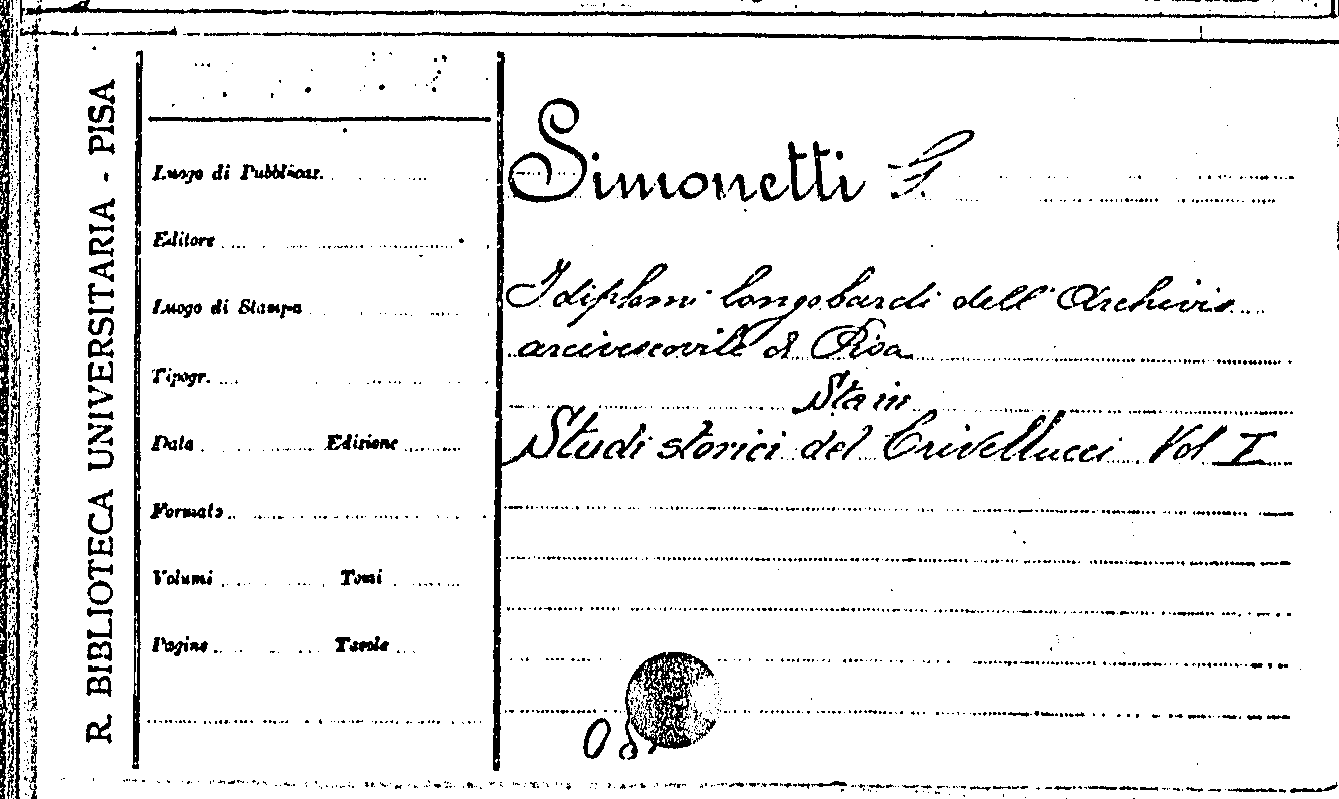 R. BIBLIOTECA UNIVERSITARIA - PISA
Luogo di Pubblicaz.
Editore
Luogo di Stampa
Tipogr.
Data Edizione
Formato
Volumi Tomi
Pagine Tavole
Simonetti F.
I diplomi longobardi dell' Archivio
arcivescovile di Pisa
Sta in
Studi storici del Crivellucci Vol I